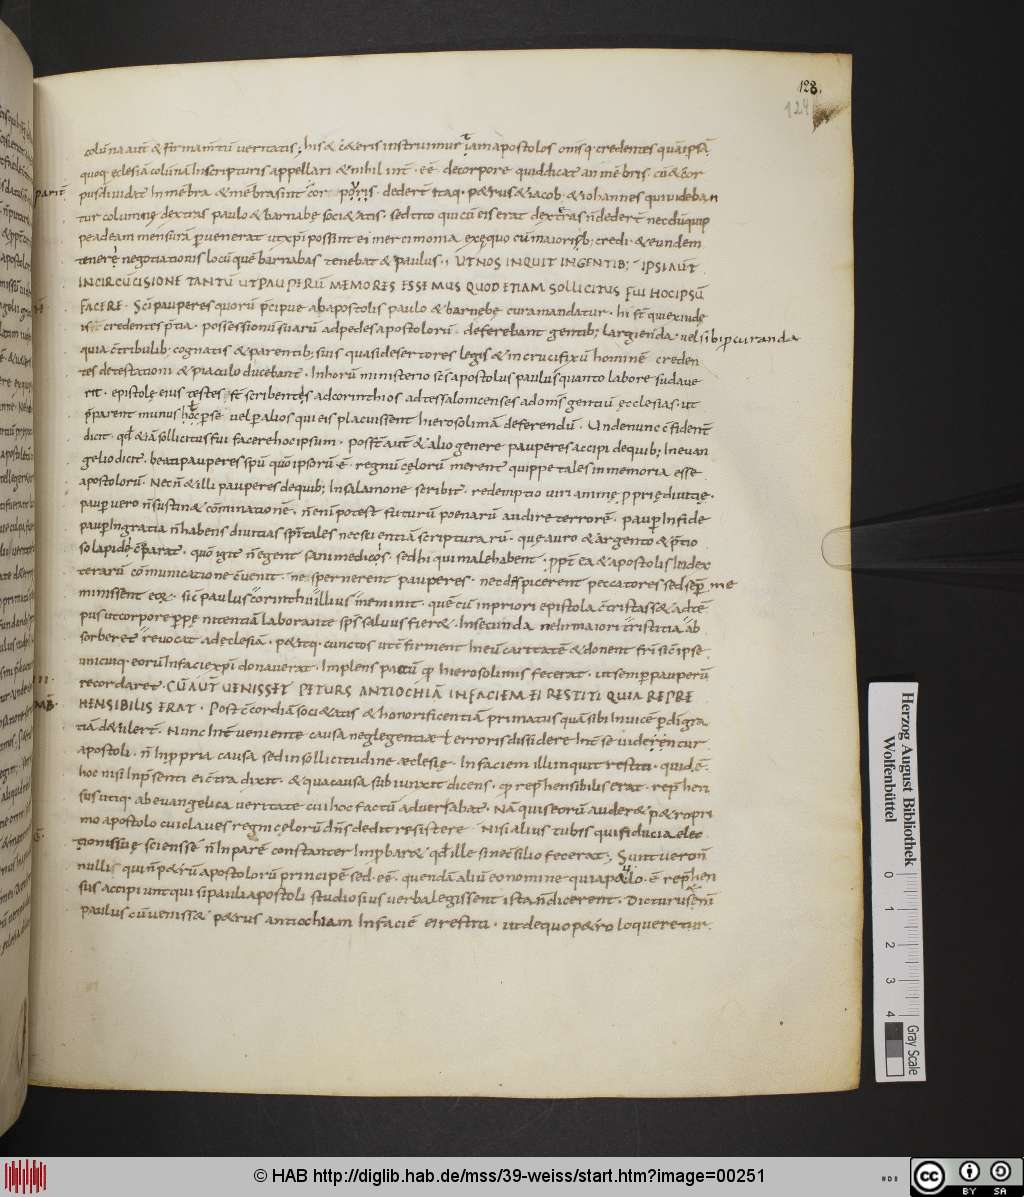 128.
124
colūna aut & firmamtū veritatis; his & c&eris instruimur iam apostolos omsq credentes quā ipsā
quoq eclesiā colūnā Inscripturis appellari & nihil int · eē · de corpore quid dicat an mēbris cū & cor
pus diuidat In mēbra & mēbra sint corporis · dedert itaq · p&rus & iacob · & iohannes qui uideban
tur columnę dextras paulo & barnabę soci&atis · sed tito qui cū eis erat dextras n dedert necdū quip
pe ad eam mensurā puenerat ut xpi possint ei mercimonia ex ęquo cū maiorib; credi · & eundem
tenere negotiationis locū quē barnabas tenebat & paulus ·, UT NOS INQUIT IN GENTIB; IPSI AUT
IN CIRCŪCISIONE TANTŪ UT PAUPERŪ MEMORES ESSEMUS QUOD ETIAM SOLLICITUS FUI HOC IPSŪ
FACERE · Sci pauperes quorū pcipue ab apostolis paulo & barnabę cura mandatur · hi st qui ex iudę
is credentes ptia · possessionū suarū ad pedes apostolorū · deferebant gentib; largienda · uel sibi pcuranda
quia c̄tribulib; cognatis & parentib; suis quasi desertores legis & in crucifixū hominē creden
tes detestationi & piaculo ducebant · In horū ministerio scs apostolus paulus quanto labore sudaue
rit · epistolę eius testes st scribentes ad corinthios ad tessalonicenses ad oms gentiū ęcclesias · ut
pparent munus hoc p se uel p alios qui eis placuissent hierosolimā deferendū · Unde nunc c̄fident
dicit · qd & iā sollicitus fui facere hoc ipsum · post aut & alio genere pauperes accipi de quib; In euan
gelio dicit · beati pauperes spū quō ipsorū ē · regnū cęlorū merent quippe tales in memoria esse
apostolorū · Nec n & illi pauperes de quib; In salamone scribit · redemptio uiri animę pprię diuitię ·
paup uero n sustin& cōminatione · n eni potest futurū poenarū audire terrorē · paup In fide
paup In gratia n habens diuitias spitales nec scientiā scripturarū · que auro & argento & ptio
so lapidę cparat · quō igit n egent sani medicos · sed hi qui male habent · ppt ea & apostolis In dex
terarū cōmunicatione cuenit · ne spernerent pauperes · nec despicerent peccatores sed sep me
minissent eoꝝ · sic paulus corinthii illius meminit · quē cū in priori epistola c̄tristass& ad tē
pus ut corpore p penitentiā laborante sps saluus fier& · In secunda ne In maiori tristitia ab
sorberet reuocat ad eclesiā · p&itq · cunctos ut c̄firment In eū caritatē & donent fri sic ipse
unicuiq · eorū In faci xpi donauerat · Implens pactū qd hierosolimis fecerat · ut semp pauperū
recordaret · CŪ AUT UENISSET PETURS ANTIOCHIĀ IN FACIEM EI RESTITI QUIA REPRE
HENSIBILIS ERAT · Post c̄cordiā soci&atis & honorificentiā primatus quā sibi Inuicē p digra
apostoli · n In ppria causa sed in sollicitudine ęclesię · In faciem illi inquit restiti · quid ē ·
hoc nisi In psenti ei c̄tra dixit · & qua causa subiunxit dicens · qd rephensibilis erat · rephen
sus utiq · ab euangelica ueritate cui hoc factū aduersabat · Nā quis eorū auder& p&ro pri
mo apostolo cui claues regni cęlorū dns dedit resistere · Nisi alius talis qui fiducia elec
tionis suę sciens se n In parē constanter Improbar& qd ille sine c̄silio fecerat; Sunt uero n
nulli qui n p&rū apostolorū principē sed · eē · quendā aliū eo nomine qui a paulo · ē rephen
sus accipiunt qui si pauli apostoli studiosius uerba legissent ista n dicerent · Dicturus eni
paulus cū uenisset p&rus antiochiam In faciē ei restiti · ut de quo p&ro loqueretur ·
Herzog August Bibliothek
Wolfenbüttel
0 1 2 3 4
Gray Scale
© HAB http://diglib.hab.de/mss/39-weiss/start.htm?image=00251
cc BY SA